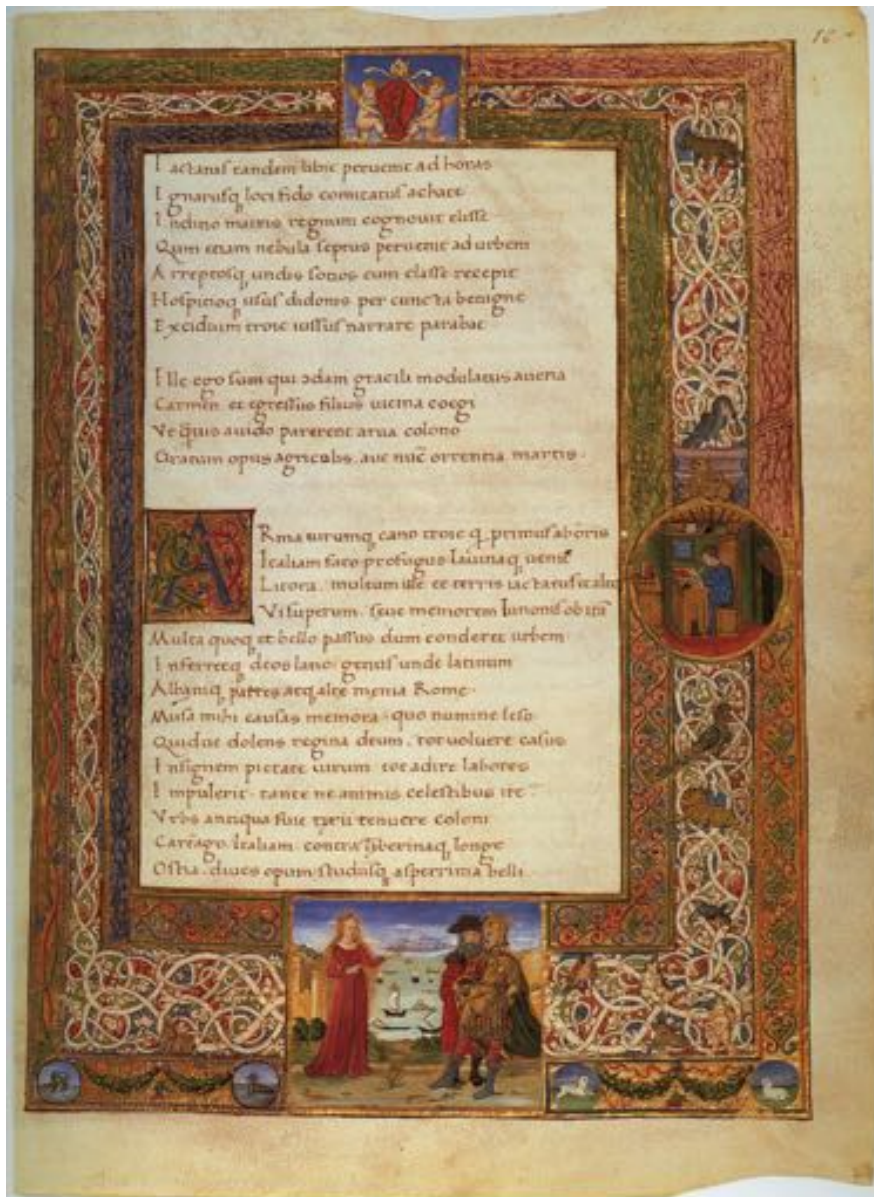 Iactatus tandem libie peruenit ad horas
Ignarusq loci fido comitatus achate
Indicio matris regnum cognouit elisse
Qum etiam nebula septus peruenit ad urbem
Arreptosq undis sotios cum classe recepit
Hospitioq usus didonis per cuncta benigne
Excidium troie iussus narrare parabat
Ille ego sum qui qdam gracili modulatus auena
Carmen et egressus siluis uicina coegi
Vt quis auido parerent arua colono
Gratum opus agricolis. aut nuc orrentia martis.
ARma uirumq cano troie q primus ab oris
Italiam fato profugus lauinaq uenit
Litora. multum ille et terris iactatus et alto
Vi superum. seue memorem Iunonis ob ira
Multa quoq et bello passus dum conderet urbem
Inferretq deos latio. genus unde latinum
Albaniq patres atq alte menia Rome.
Musa mihi causas memora. quo numine leso
Quidue dolens regina deum. tot uoluere casus
Insignem pietate uirum. tot adire labores
Impulerit. tante ne animis celestibus ire
Vrbs antiqua fuit tyrii tenuere coloni
Cartago. Italiam. contra tyberinaq longe
Ostia. diues opum studiisq asperrima belli.